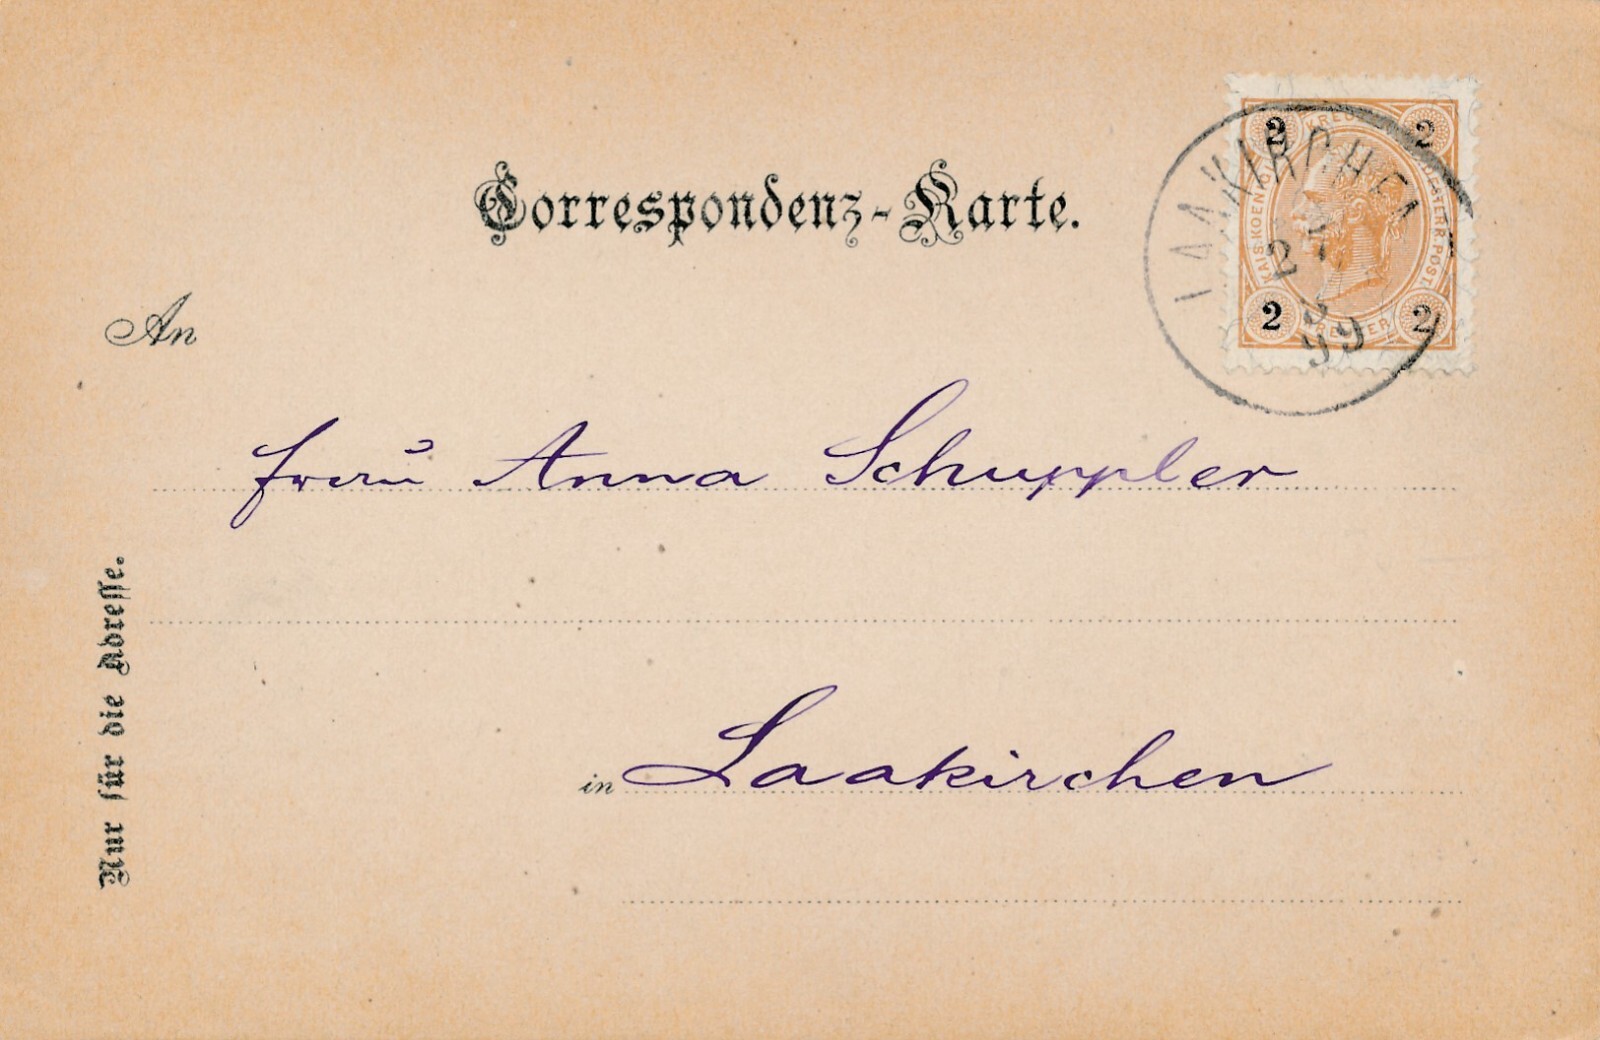 Correspondenz-Karte.
2 KREUZER 2
KAIS. KOENIGL. OESTERR. POST
2 KREUZER 2
LAAKIRCHEN
99
An
Frau Anna Schuppler
in Laakirchen
Nur für die Adresse.